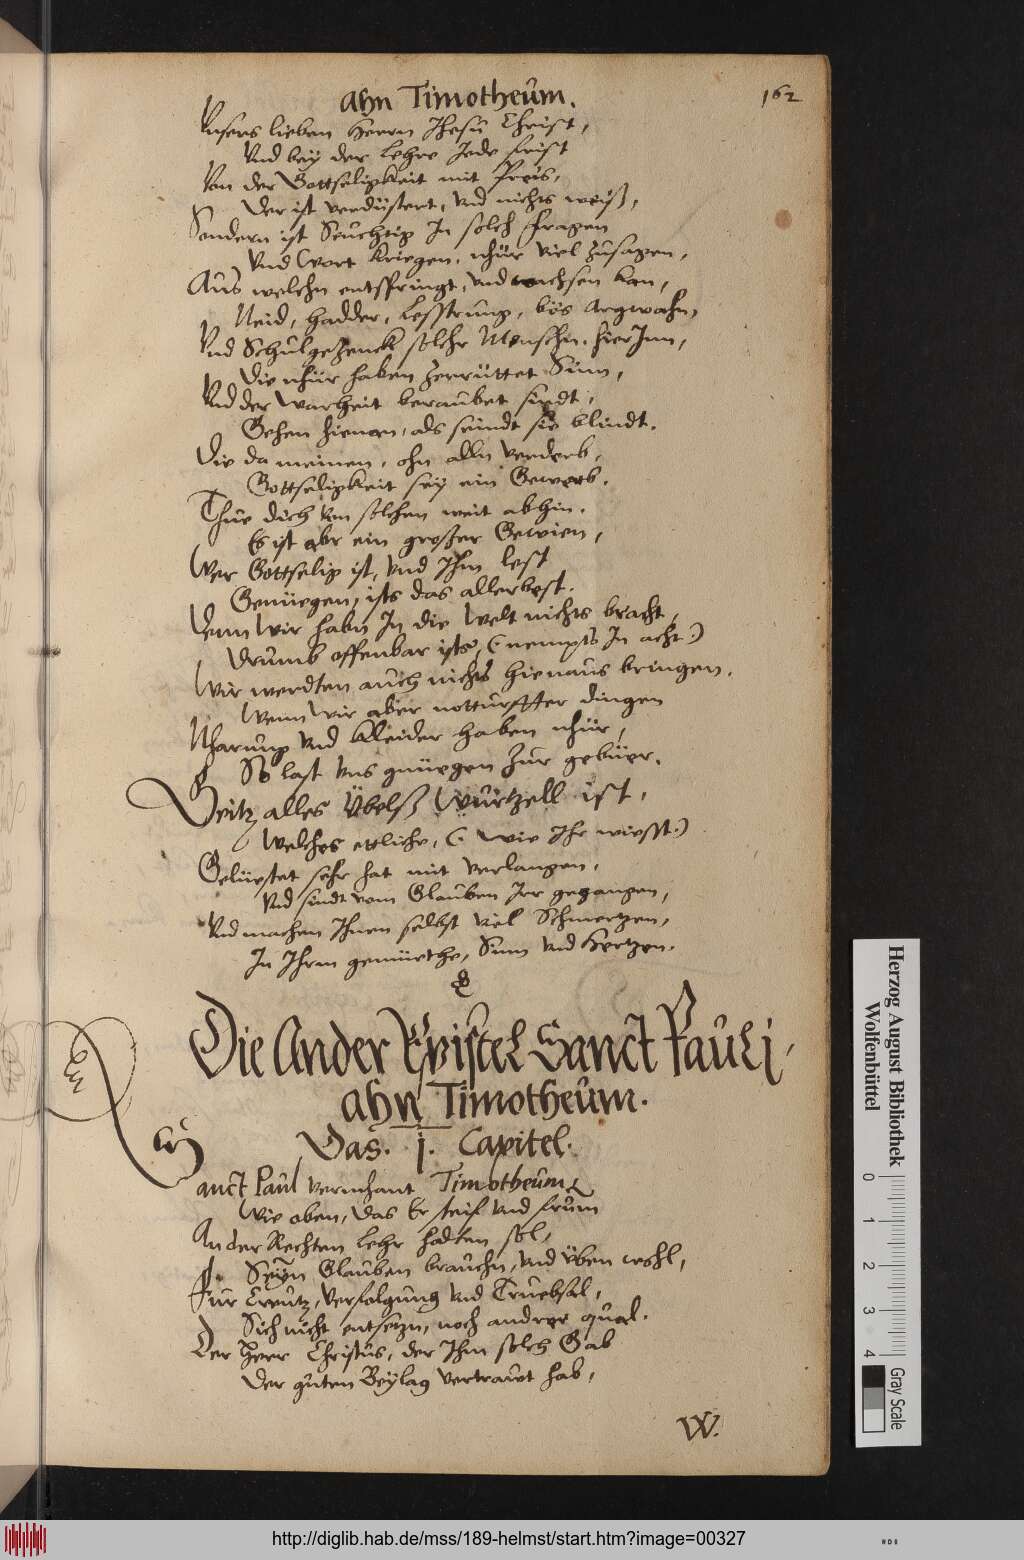 ahn Timotheum.
162
Unsers lieben Herrn Jhesu Christ,
Und bey der Lehre Jede frist
Von der Gottseligkeit mit Preis,
Der ist verdüstert, und nichts weiß,
Sondern ist Seuchtig In solch fragen
Und Wort kriegen, nhür viel zusagen,
Aus welchn entspringt, und wachsen kan,
Neid, hadder, Lesstrung, bös Argwahn,
Und Schulgezenck solchr Menschn. hier Inn,
Die nhür haben zerrüttet Sinn,
Und der Warheit beraubet sindt,
Gehen hienen, als seindt sie blindt.
Die da meinen, ohn alln Verderb,
Gottseligkeit sey ein Gewerb.
Thue dich von solchen weit abhin.
Es ist abr ein grosser Gewien,
Wer Gottselig ist, und Ihm lest
Genüegen, ists das allerbest.
Denn Wir habn In die Welt nichts bracht,
Drumb offenbar ists, (: nempts In acht :)
Wir werdten auch nichts hienaus bringen.
Wenn Wir aber notturffter dingen
Nharung und Kleider haben nhür,
So last uns gnüegen zur gebüer.
Geitz alles Übelß Würtzell ist,
Welches ettliche, (: wie Ihr wiesst :)
Gelüestet sehr hat mit Verlangen,
Und sindt vom Glauben Irr gegangen,
Und machen Ihnen selbst viel Schmertzen,
In Ihrm gemüethe, Sinn und Hertzen.
Die Ander Epistel Sanct Pauli
ahn Timotheum.
Das. I. Capitel.
Sanct Paul vermhant Timotheum
Wie oben, das Er steif und frum
An der Rechten Lehr halten sol,
Seyn Glauben brauchn, und üben wohl,
Für Creutz, Verfolgung und Truebsal,
Sich nicht entsetzn, noch andrer qual.
Der Herr Christus, der Ihm solch Gab
Der guten Beylag vertrawt hab,
W.
Herzog August Bibliothek
Wolfenbüttel
0 1 2 3 4
Gray Scale
http://diglib.hab.de/mss/189-helmst/start.htm?image=00327